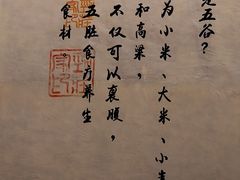 是五谷？
为小米、大米、小
和高粱，
不仅可以裹腹，
五胜食疗养生
食材。